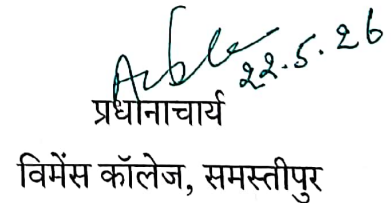 22.5.26
प्रधानाचार्य
विमेंस कॉलेज, समस्तीपुर